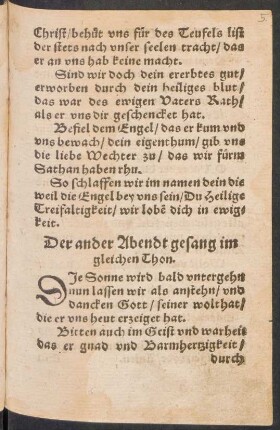 5
Christ/behüt vns für des Teufels list
der stets nach vnser seelen tracht/das
er an vns hab keine macht.
Sind wir doch dein ererbtes gut/
erworben durch dein heiliges blut/
das war des ewigen Vaters Rath/
als er vns dir geschencket hat.
Befiel dem Engel/das er kum vnd
vns bewach/dein eigenthum/gib vns
die liebe Wechter zu/das wir fürm
Sathan haben rhu.
So schlaffen wir im namen dein die
weil die Engel bey vns sein/Du Heilige
Treifaltigkeit/wir lobē dich in ewig⸗
keit.
Der ander Abendt gesang im
gleichen Thon.
DJe Sonne wird bald vntergehn
nun lassen wir als anstehn/vnd
dancken Gott/seiner wolthat/
die er vns heut erzeiget hat.
Bitten auch im Geist vnd warheit
das er gnad vnd Barmhertzigkeit/
durch